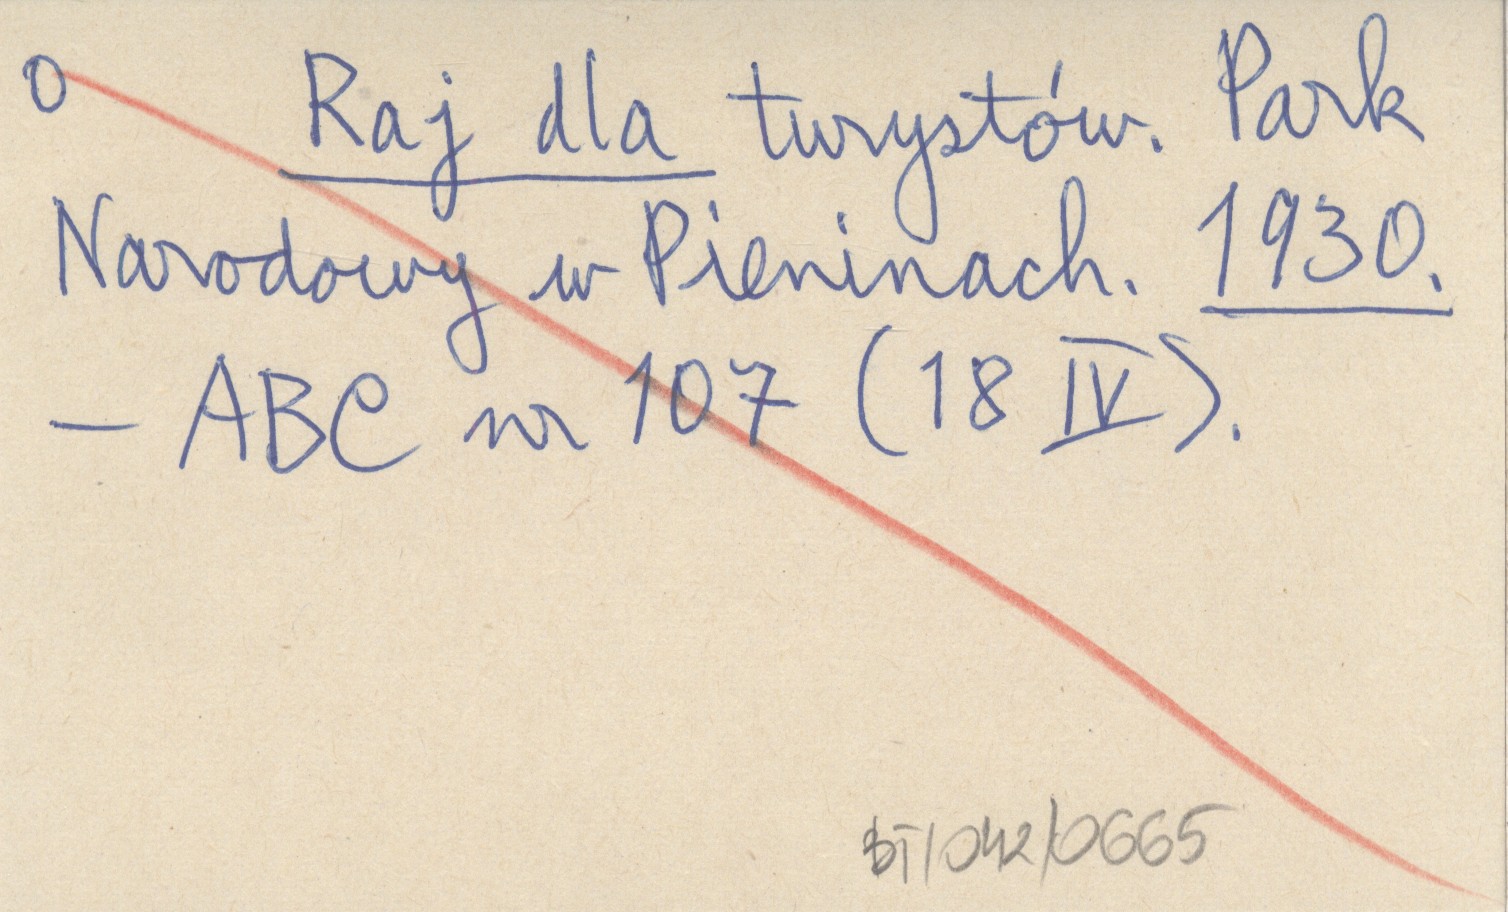 0 Raj dla turystów. Park
Narodowy w Pieninach. 1930.
– ABC nr 107 (18 IV).
BT/042/0665